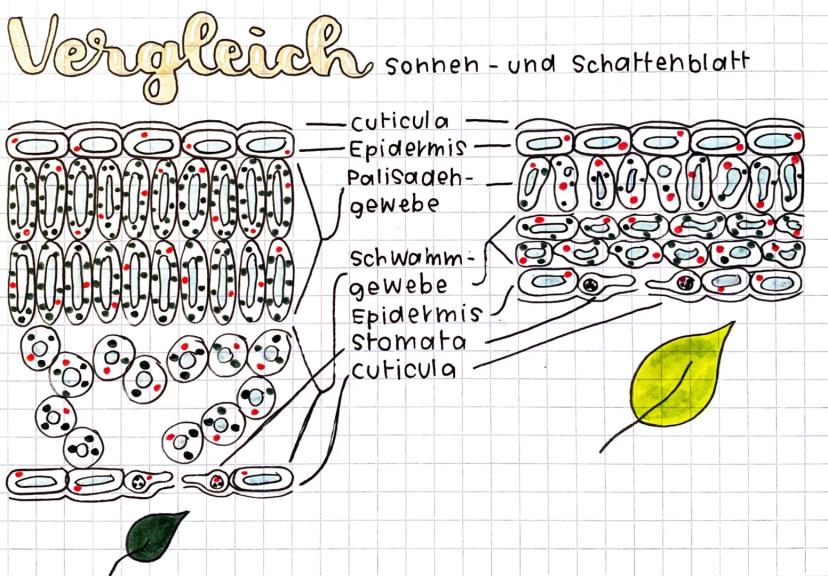 Vergleich sonnen- und schattenblatt
cuticula
Epidermis
Palisaden-
gewebe
schwamm-
gewebe
Epidermis
stomata
cuticula